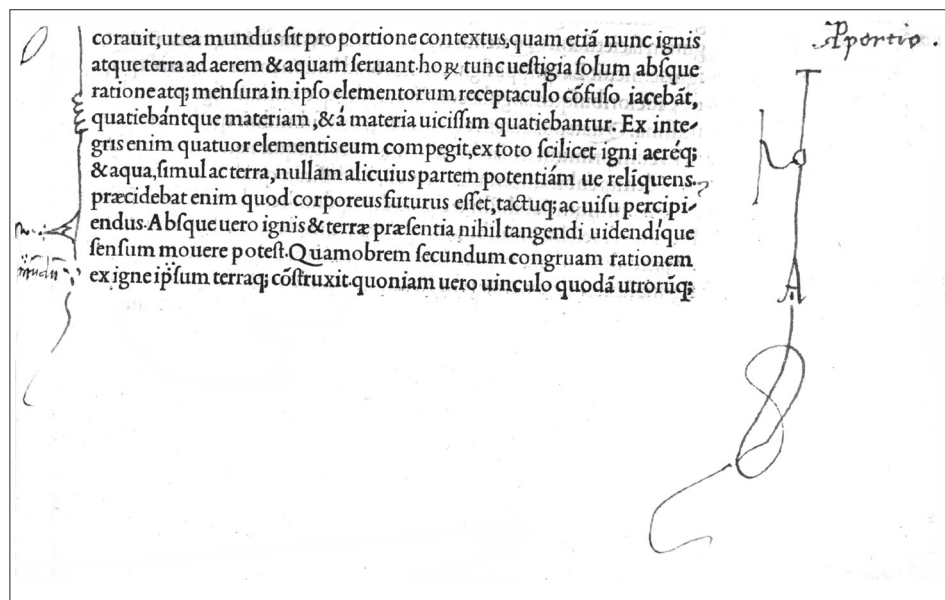 corauit,ut ea mundus sit proportione contextus,quam etiã nunc ignis
atque terra ad aerem & aquam seruant.hoꝝ tunc uestigia solum absque
ratione atq; mensura in ipso elementorum receptaculo cõfuso iacebãt,
quatiebántque materiam,&á materia uicissim quatiebantur. Ex inte-
gris enim quatuor elementis eum compegit,ex toto scilicet igni aeréq;
& aqua,simul ac terra,nullam alicuius partem potentiám ue relíquens.
præcidebat enim quod corporeus futurus esset,tactuq; ac uisu percipi-
endus.Absque uero ignis & terræ præsentia nihil tangendi uidendíque
sensum mouere potest.Quamobrem secundum congruam rationem
ex igne ip̃sum terraq; cõstruxit.quoniam uero uinculo quodã utrorũq;
ꝓportio.
T
A